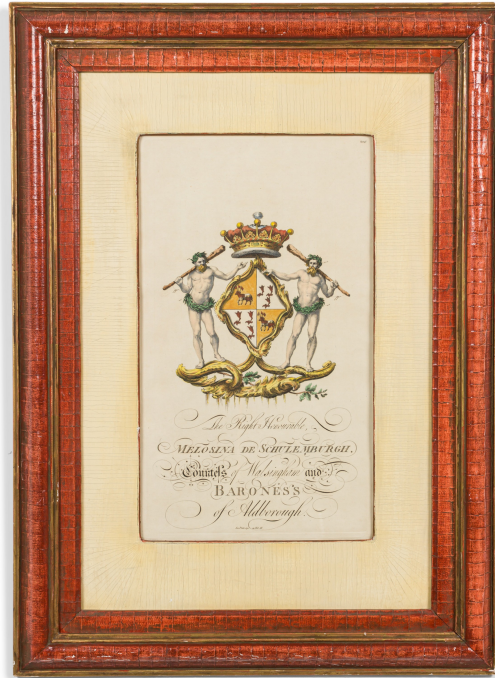 The Right Honourable,
MELOSINA DE SCHULEMBURGH,
Countess of Walsingham and
BARONESS
of Aldborough.